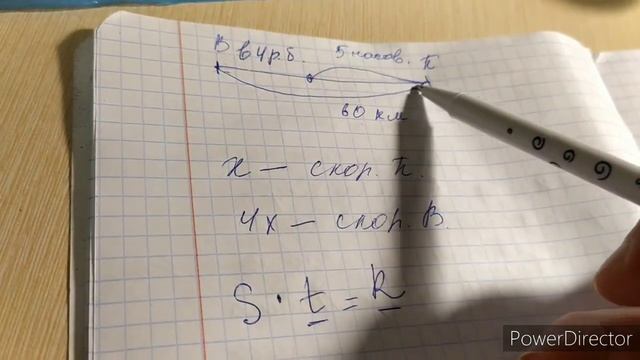 В в 4 р. б. 5 часов. П
60 км
х — скор. П.
4х — скор. В.
S · t = R
PowerDirector